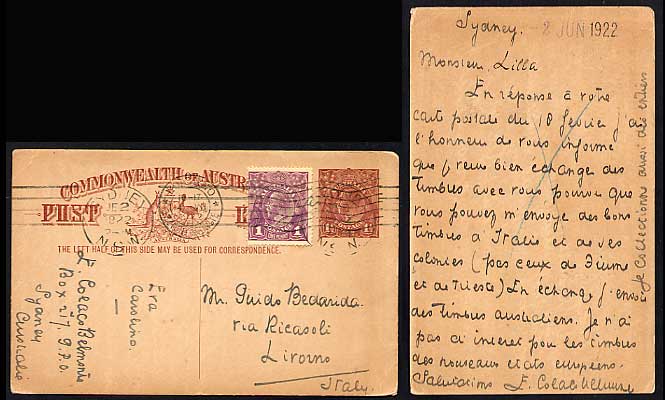 COMMONWEALTH OF AUSTR
POST
THE LEFT HALF OF THIS SIDE MAY BE USED FOR CORRESPONDENCE.
Mr. Guido Bedarida
via Ricasoli
Livorno
Italy.
Era
Carolina.
E. Colaço Belmonte
Box 217, G.P.O.
Sydney
Australia
Sydney. - 2 JUN 1922
Monsieur Lilla
En réponse à votre
carte postale du 18 février j'ai
l'honneur de vous informe
que je veux bien échange des
timbres avec vous pourvu que
vous pouvez m'envoye des bons
timbres d'Italie et de ses
colonies (pas ceux de Fiume
et de Trieste) En échange j'envoi
des timbres australiens. Je n'ai
pas d'interet pou les timbres
des nouveaux etats européens.
Salutations E. Colaço Belmonte
Je collectionne aussi des entiers